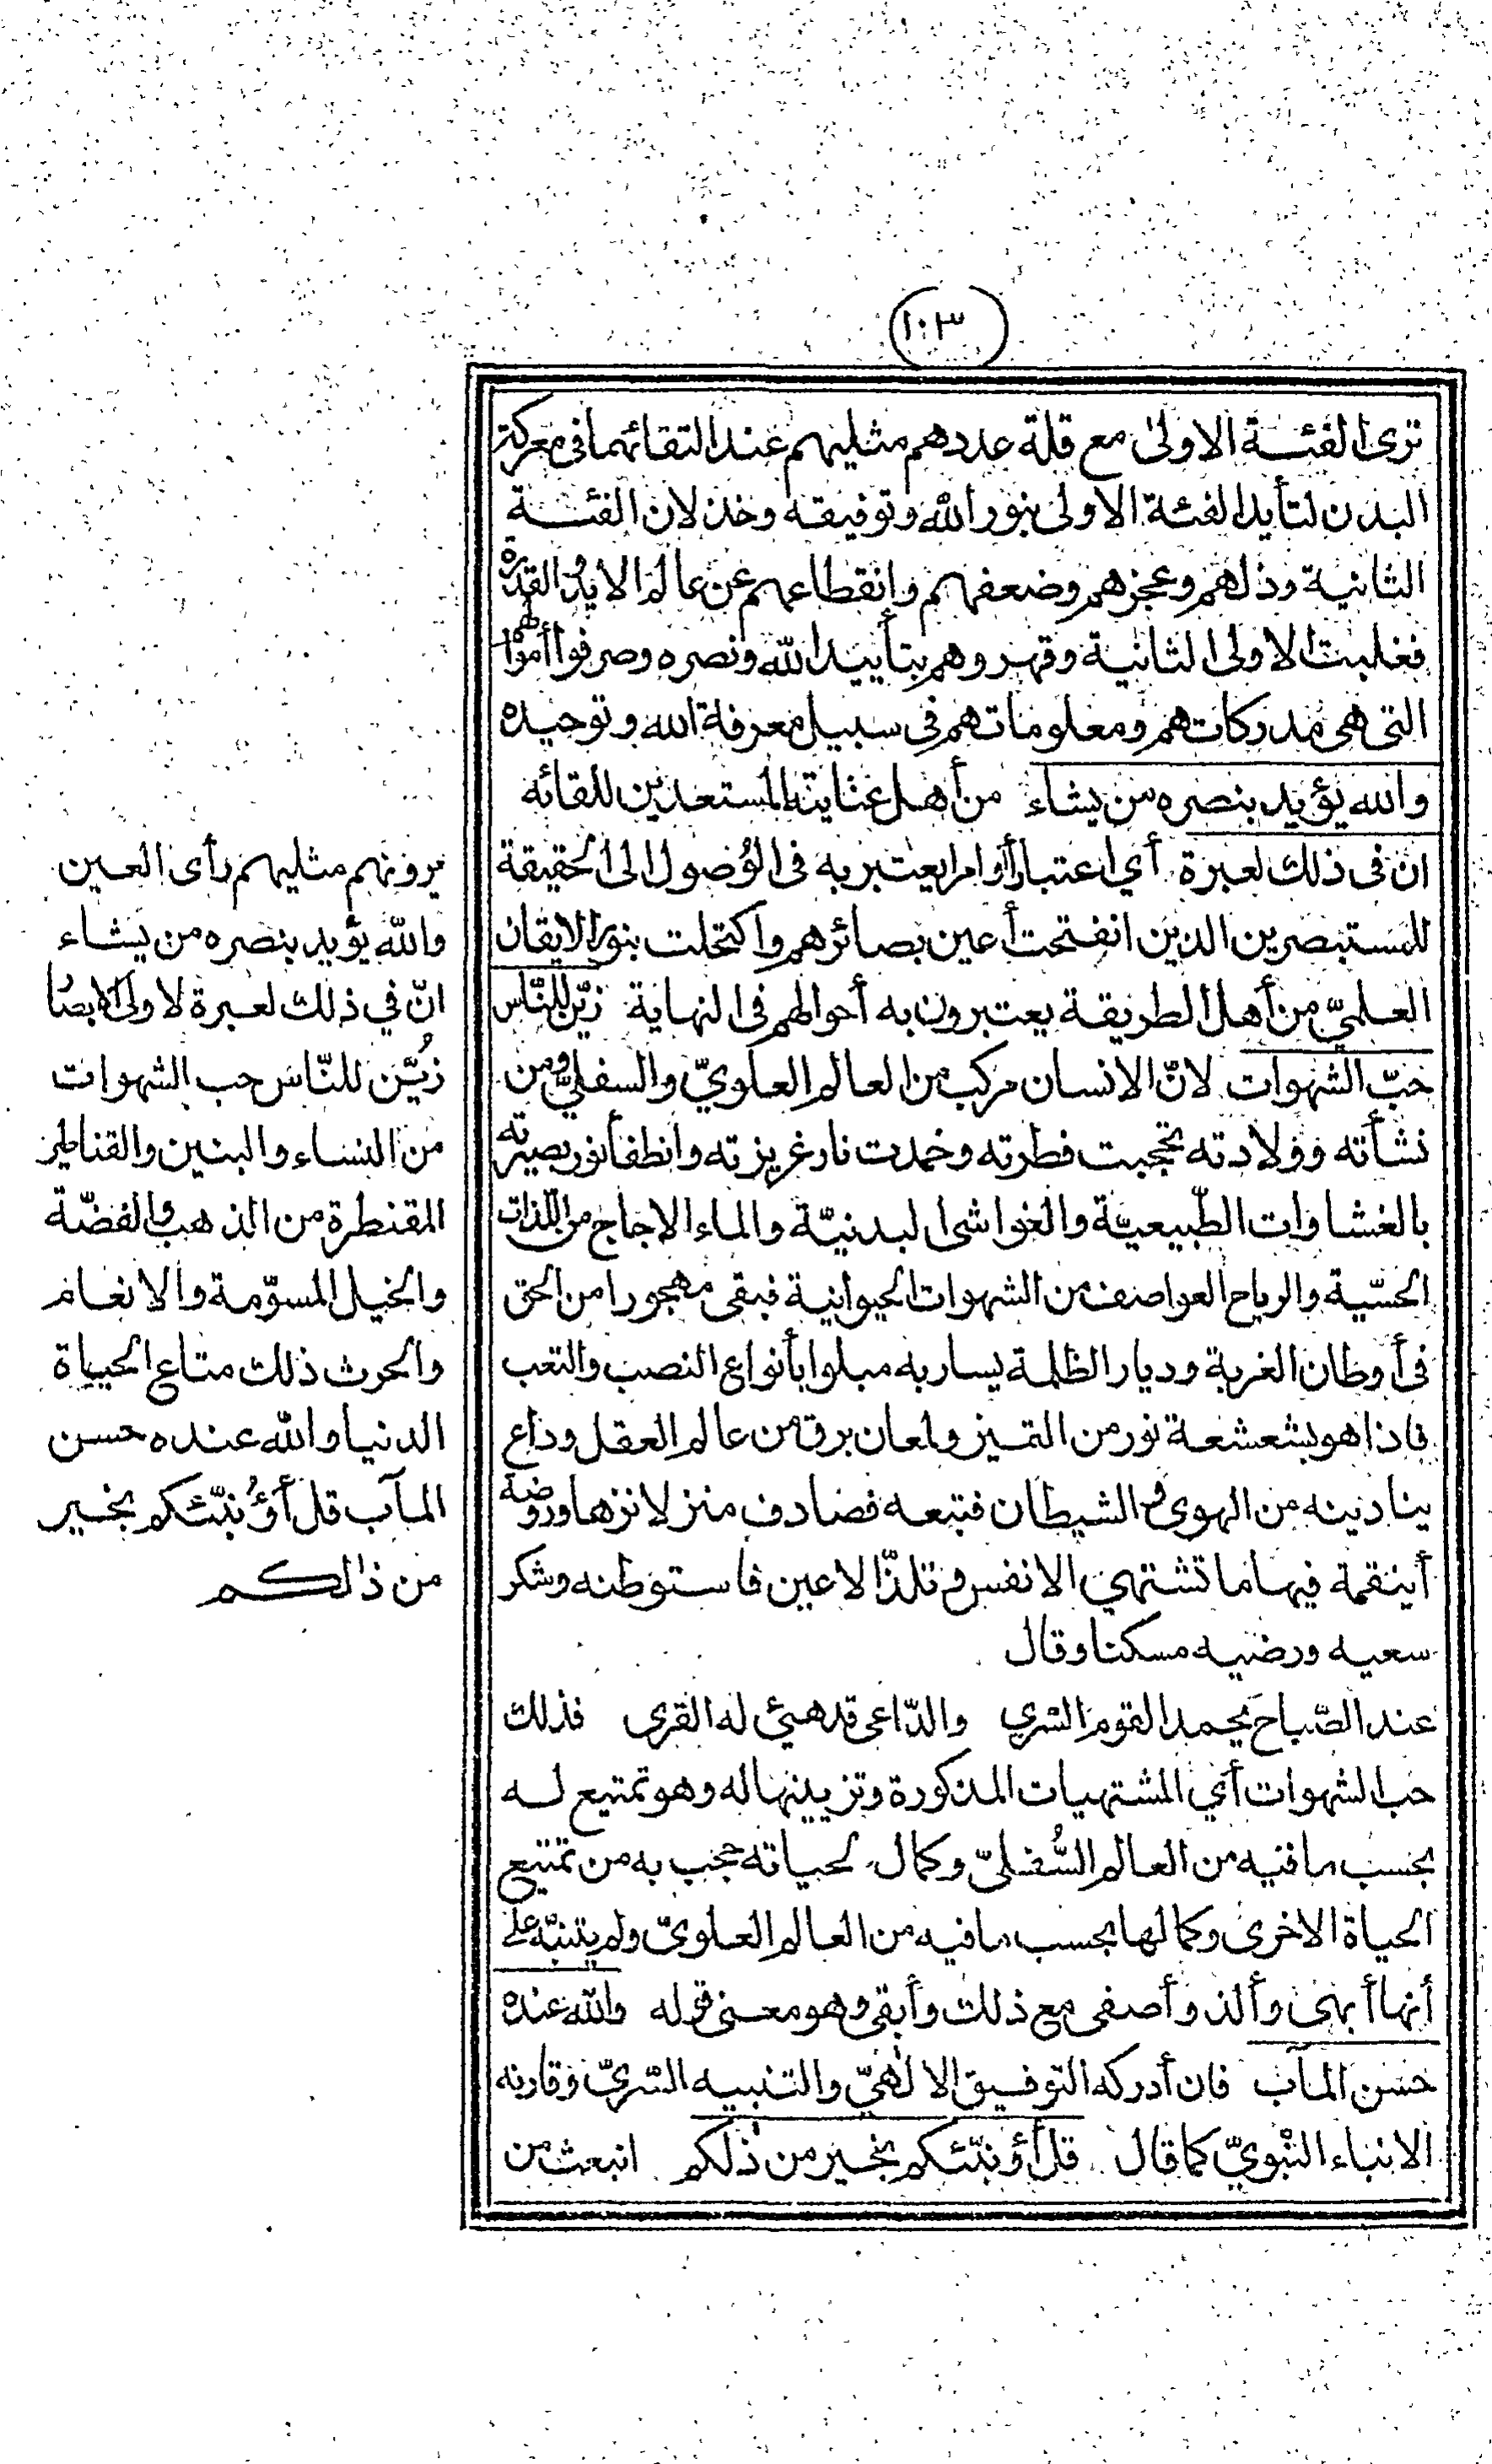 (١٠٣)
ترى الفئة الاولى مع قلة عددهم مثليهم عند التقائهما في معركة
البدن لتأيد الفئة الاولى بنور الله وتوفيقه وخذلان الفئة
الثانية وذلهم وعجزهم وضعفهم وانقطاعهم عن عالم الايد والقدرة
فغلبت الاولى الثانية وقهروهم بتأييد الله ونصره وصرفوا أموالهم
التى هى مدركاتهم ومعلوماتهم في سبيل معرفة الله وتوحيده
والله يؤيد بنصره من يشاء من أهل عنايته المستعدين للقائه
ان فى ذلك لعبرة أي اعتبارا أو أمرا يعتبر به فى الوُصول الى الحقيقة
للمستبصرين الذين انفتحت أعين بصائرهم واكتحلت بنور الايقان
العلميّ من أهل الطريقة يعتبرون به أحوالهم فى النهاية زيّن للنّاس
حبّ الشهوات لانّ الانسان مركب من العالم العلويّ والسفليّ ومن
نشأته وولادته تحجبت فطرته وخمدت نار غريزته وانطفأ نور بصيرته
بالغشاوات الطّبيعيّة والغواشى البدنيّة والماء الاجاج من اللّذات
الحسّية والرياح العواصف من الشهوات الحيوانية فبقى مهجورا من الحق
فى أوطان الغربة وديار الظلمة يسار به مبلوا بأنواع النصب والتعب
فاذا هو بشعشعة نور من التميز ولمعان برق من عالم العقل وداع
ينادينه من الهوى والشيطان فتبعه فصادف منزلا نزها وروضة
أنيقة فيها ما تشتهي الانفس وتلذّ الاعين فاستوطنه وشكر
سعيه ورضيه مسكنا وقال
عند الصّباح يحمد القوم السّري والدّاعى قد هيئ له القرى فذلك
حب الشهوات أي المشتهيات المذكورة وتزيينها له وهو تمتيع له
بحسب ما فيه من العالم السُّفليّ وكمال لحياته حجب به من تمتيع
الحياة الاخرى وكمالها بحسب ما فيه من العالم العلويّ ولم يتنبّه على
أنها أبهى وألذ وأصفى مع ذلك وأبقى وهو معنى قوله والله عنده
حسن المآب فان أدركه التوفيق الالٰهيّ والتنبيه السّريّ وقارنه
الانباء النبويّ كما قال قل أؤنبّئكم بخير من ذٰلكم انبعث من
يرونهم مثليهم رأى العين
والله يؤيد بنصره من يشاء
انّ في ذلك لعبرة لاولى الابصا
زُيّن للنّاس حب الشهوات
من النساء والبنين والقناطير
المقنطرة من الذهب والفضّة
والخيل المسوّمة والانعام
والحرث ذلك متاع الحياة
الدنيا والله عنده حسن
المآب قل أؤُنبّئكم بخير
من ذالكم